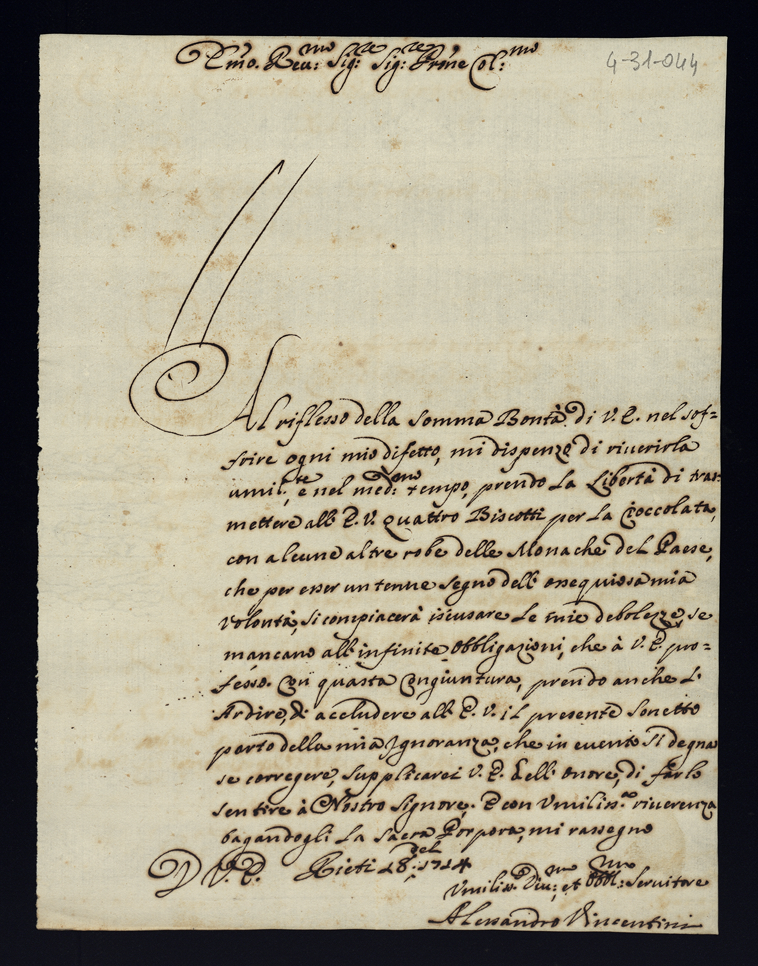 Emo. Reu:mo Sig:re Sig:re Prõne Col:mo
4-31-044
Al riflesso della somma Bontà di V. E. nel sof=
frire ogni mio difetto, mi dispenzo di riuerirla
umil:te, e nel med:mo tempo, prendo la Libertà di tras=
mettere all' E. V. quattro Biscotti per la Cioccolata,
con alcune altre robe delle Monache del Paese,
che per esser un tenue segno dell' ossequiosa mia
volontà, si compiacerà iscusare le mie debolezze, se
mancano all' infinite obbligazioni, che à V. E. pro=
fesso. Con questa congiuntura, prendo anche l'
Ardire, di accludere all' E. V. il presente Sonetto
parto della mia Ignoranza, che in euento si degna
se corregere, supplicarei V. E. dell' onore, di farlo
sentire à Nostro Signore, E con Vmiliss:a riuerenza
bagandogli la Sacra Porpora, mi rassegno
D V. E. Rieti 18: del 1714
Vmiliss:o Diu:mo et Obbl:mo Seruitore
Alessandro Vincentini